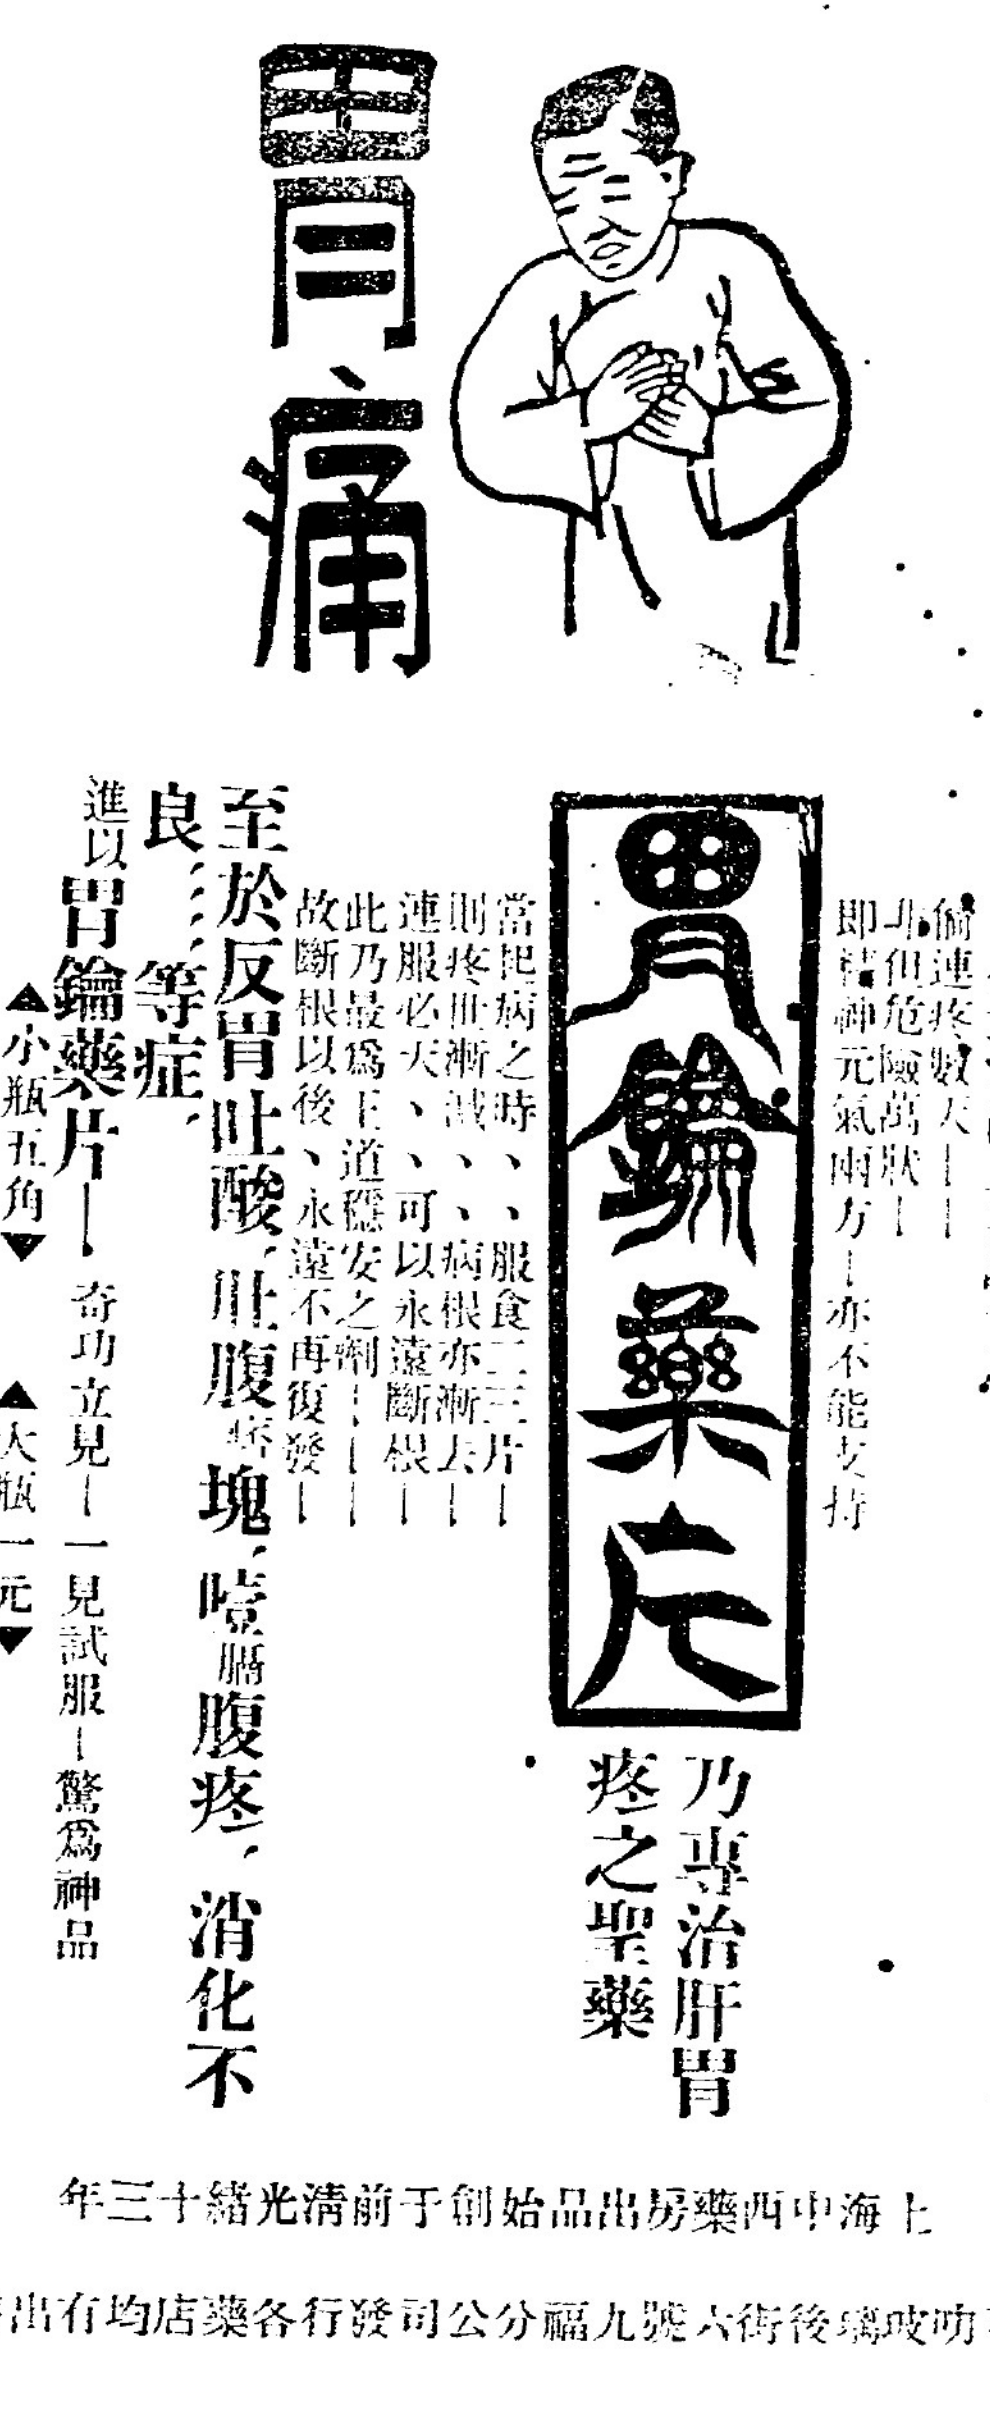 胃痛
倘連疼數天――
非但危險萬狀―
即精神元氣兩方―亦不能支持
胃鑰藥片
乃專治肝胃
疼之聖藥
當犯病之時、、服食二三片―
則疼世漸减、、病根亦漸去―
連服必天、、可以永遠斷根―
此乃最爲王道穩安之劑―――
故斷根以後、永遠不再復發―
至於反胃吐酸，肚腹痞塊，噎膈腹疼，消化不
良，，，等症，
進以胃鑰藥片―奇功立見―一見試服―驚爲神品
▲小瓶五角▼ ▲大瓶一元▼
上海中西藥房出品始創于前清光緒十三年
叻玻璃後街六號九福分公司發行各藥店均有出